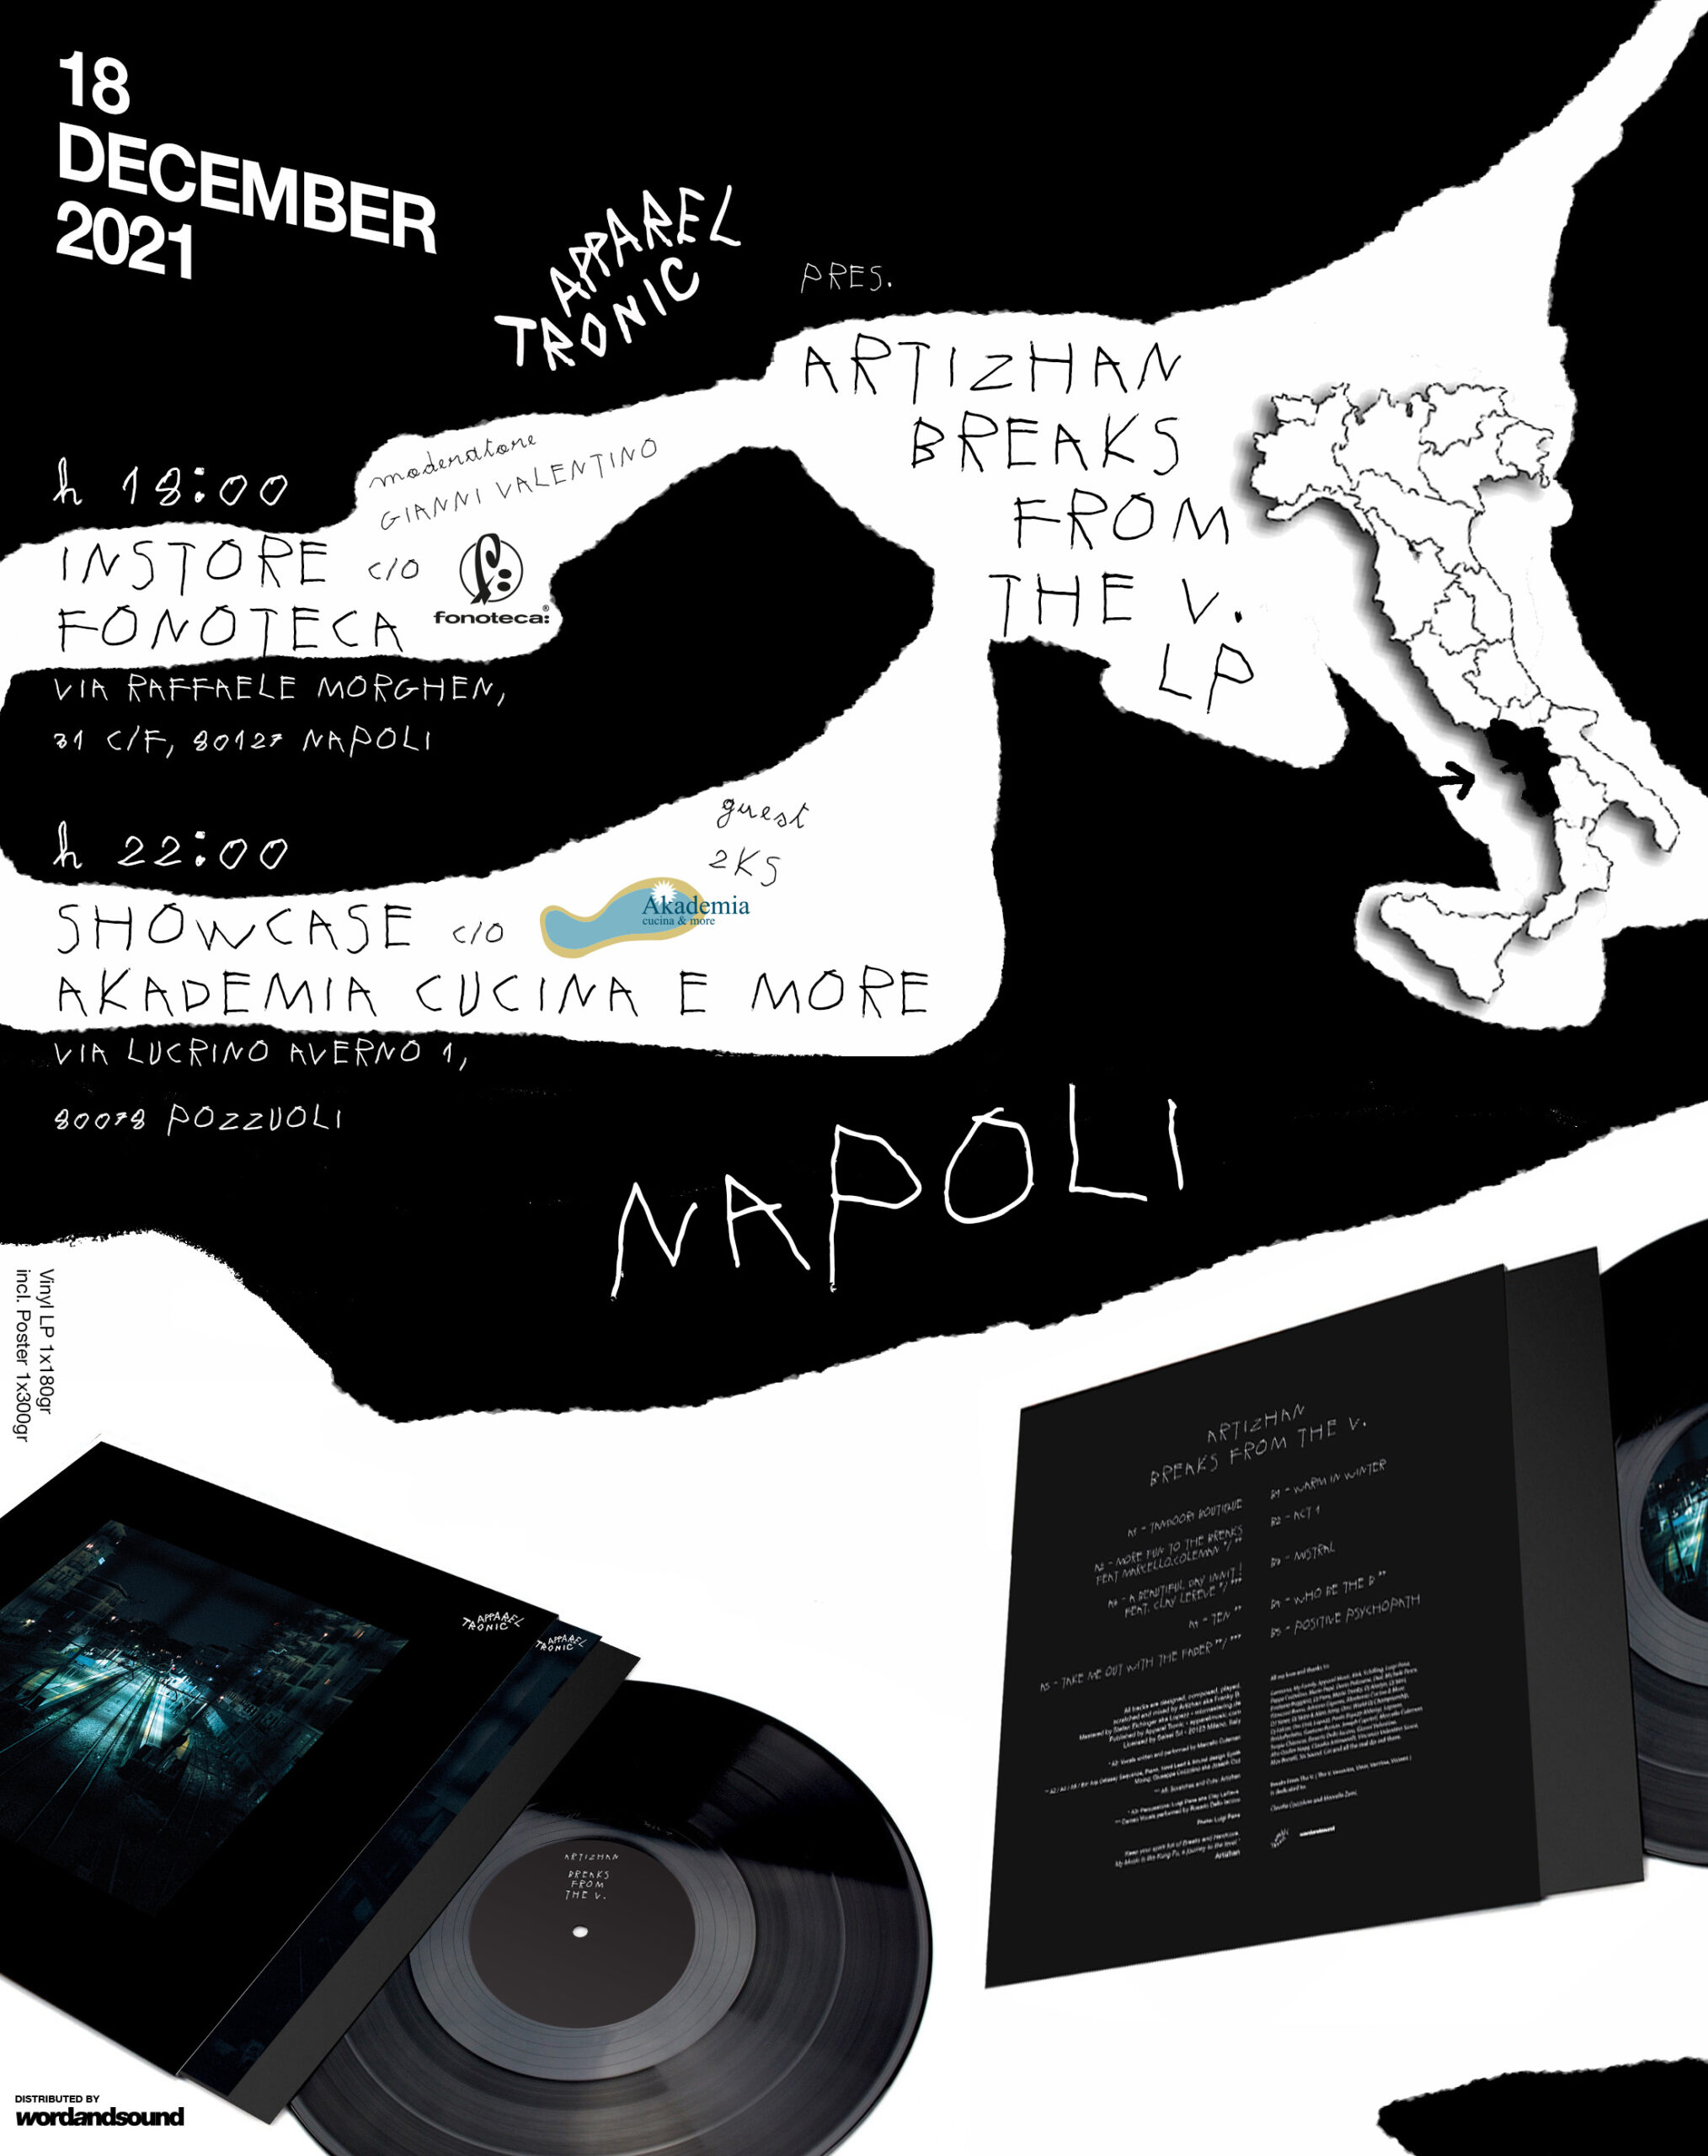 18
DECEMBER
2021
APPAREL
TRONIC
PRES.
ARTIZHAN
BREAKS
FROM
THE V.
LP
h 18:00
moderatore
GIANNI VALENTINO
INSTORE c/o
FONOTECA
fonoteca:®
VIA RAFFAELE MORGHEN,
31 C/F, 80127 NAPOLI
h 22:00
guest
2KS
SHOWCASE c/o
Akademia
cucina & more
AKADEMIA CUCINA E MORE
VIA LUCRINO AVERNO 1,
80078 POZZUOLI
NAPOLI
Vinyl LP 1x180gr
incl. Poster 1x300gr
APPAREL
TRONIC
APPAREL
TRONIC
ARTIZHAN
BREAKS
FROM
THE V.
ARTIZHAN
BREAKS FROM THE V.
A1 - TANDOORI BOUTIQUE
A2 - MORE FUN TO THE BREAKS
FEAT MARCELLO COLEMAN */ **
A3 - A BEAUTIFUL DAY INNIT!
FEAT. CLAY LEREVE */ ***
A4 - TEN **
A5 - TAKE ME OUT WITH THE FADER **/ ***
B1 - WARM IN WINTER
B2 - ACT 1
B3 - MISTRAL
B4 - WHO BE THE B **
B5 - POSITIVE PSYCHOPATH
All tracks are designed, composed, played,
scratched and mixed by Artizhan aka Franky B.
Artizhan
wordandsound
DISTRIBUTED BY
wordandsound